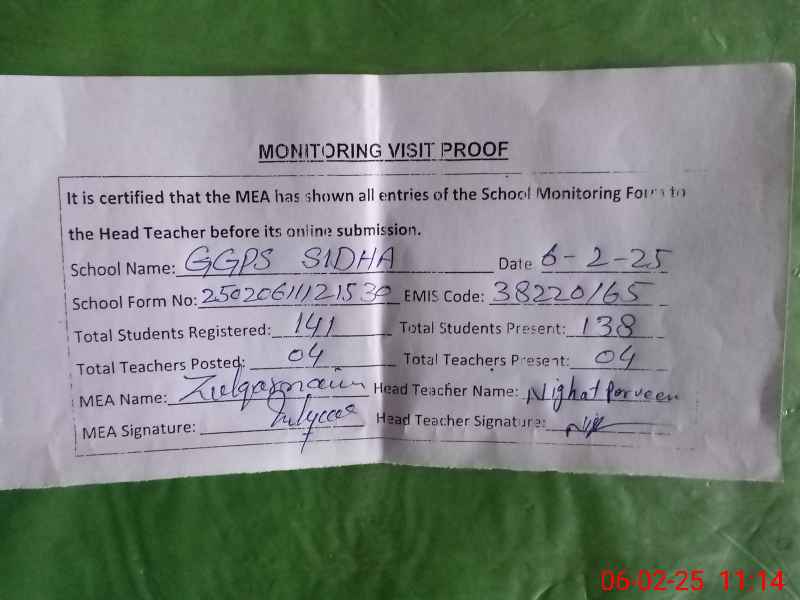 MONITORING VISIT PROOF
It is certified that the MEA has shown all entries of the School Monitoring Form to
the Head Teacher before its online submission.
School Name: GGPS SIDHA Date 6-2-25
School Form No: 25020611121530 EMIS Code: 38220165
Total Students Registered: 141 Total Students Present: 138
Total Teachers Posted: 04 Total Teachers Present: 04
MEA Name: Zulqarnain Head Teacher Name: Nighat Parveen
MEA Signature: Head Teacher Signature:
06-02-25 11:14